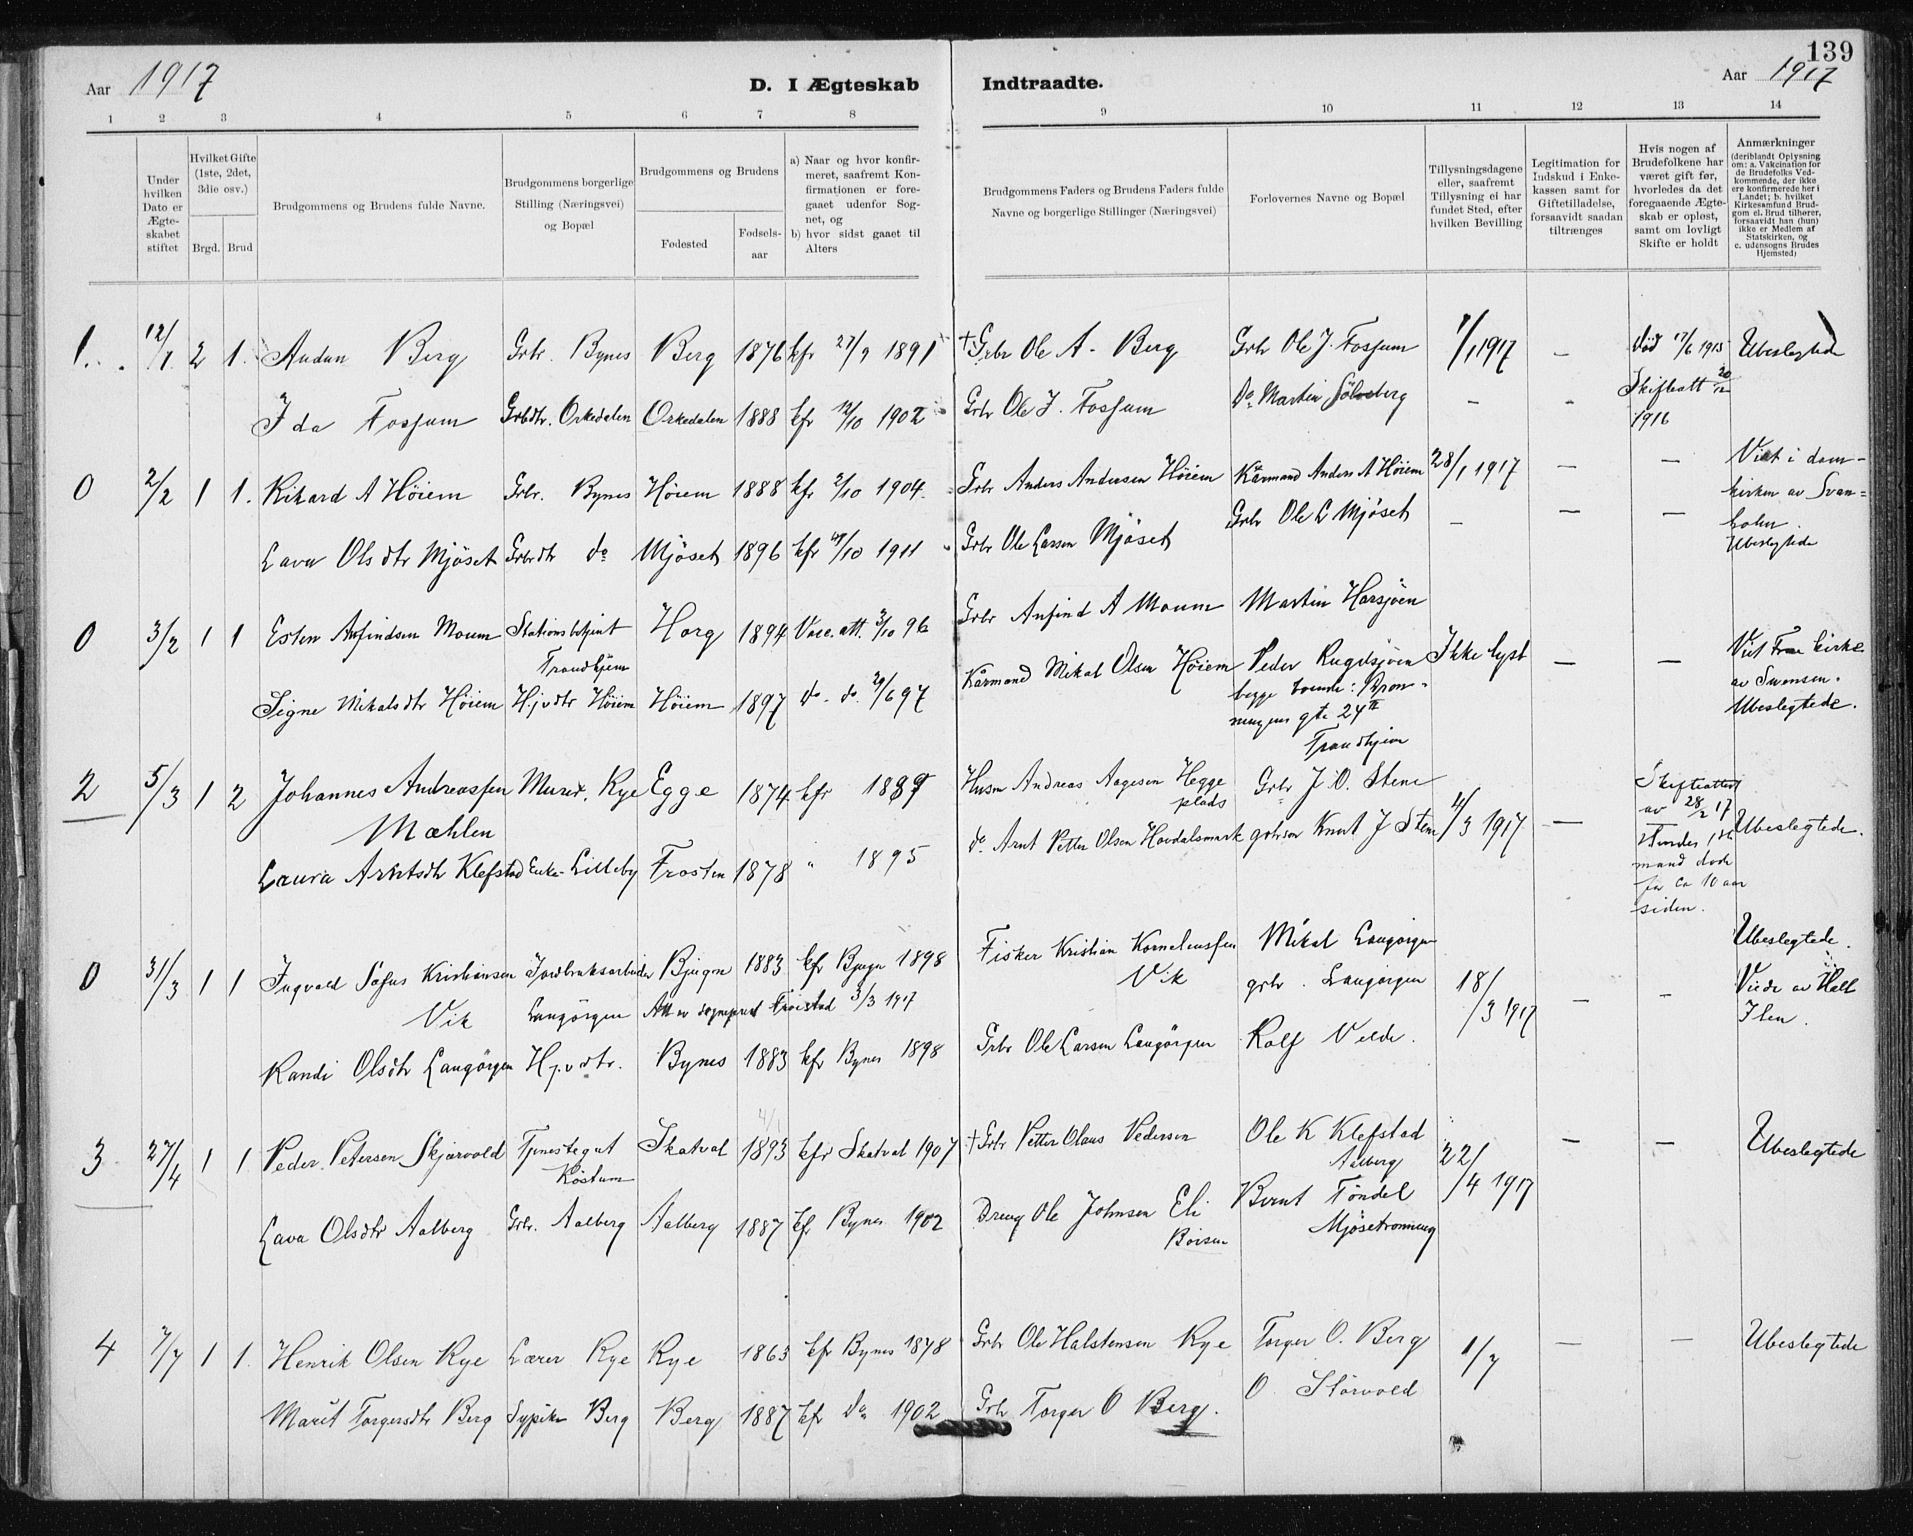 139
Aar 1917
D. I Ægteskab Indtraadte.
Aar 1917
1 2 3 4 5 6 7 8 9 10 11 12 13 14
Under hvilken Dato er Ægteskabet stiftet
Hvilket Gifte (1ste, 2det, 3die osv.)
Brgd. Brud
Brudgommens og Brudens fulde Navne.
Brudgommens borgerlige Stilling (Næringsvei) og Bopæl
Brudgommens og Brudens
Fødested
Fødsels-aar
a) Naar og hvor konfir-
meret, saafremt Kon-
firmationen er fore-
gaaet udenfor Sog-
net, og
b) hvor sidst gaaet til
Alters
Brudgommens Faders og Brudens Faders fulde
Navne og borgerlige Stillinger (Næringsvei)
Forlovernes Navne og Bopæl
Tillysningsdagene
eller, saafremt
Tillysning ei har
fundet Sted, efter
hvilken Bevilling
Legitimation for
Indskud i Enke-
kassen samt for
Giftetilladelse,
forsaavidt saadan
tiltrænges
Hvis nogen af
Brudefolkene har
været gift før,
hvorledes da det
foregaaende Ægte-
skab er opløst,
samt om lovligt
Skifte er holdt
Anmærkninger
(deriblandt Oplysning
om: a. Vakcination for
de Brudefolks Ved-
kommende, der ikke
ere konfirmerede her i
Landet; b. hvilket
Kirkesamfund Brud-
gom el. Brud tilhører,
forsaavidt han (hun)
ikke er Medlem af
Statskirken, og
c. udensogns Brudes
Hjemsted)
1. 12/1 2 1. Audun Berg Grbr. Bynes Berg 1876 kfr 27/9 1891 † Grbr Ole A. Berg Grbr Ole J. Fossum 7/1 1917 — død 17/6 1915 Ubeslegtede
Ida Fossum Grbdtr. Orkedalen Orkedalen 1888 kfr 12/10 1902 Grbr Ole J. Fossum Do Martin Sölvberg — — Skifteatt 20/12
1916
0 2/2 1 1. Rikard A Höiem Grbr. Bynes Höiem 1888 kfr 2/10 1904. Grbr Anders Andersen Höiem Kårmand Anders A Höiem 28/1 1917 — — Viet i dom-
kirken av Svan=
holm.
Lava Olsdtr Mjöset Grbrdtr do Mjöset 1896 kfr /10 1911 Grbr Ole Larsen Mjöset Grbr Ole L Mjöset — — — Ubeslegtede
0 3/2 1 1 Esten Anfindsen Moum Stationsbetjent Horg 1894 Vacc. att. 3/10 96 Grbr Anfind A Moum Martin Harsjöen
Trondhjem
Signe Mikalsdtr Höiem Hjvdtr Höiem Höiem 1897 do. do. 29/6 97 Kårmand Mikal Olsen Höiem Peder Rugelsjöen Ikke lyst — — Viet kirke
av Swensen.
Ubeslegtede.
begge boende:
gte 24 II
Trondhjem
2 5/3 1 2 Johannes Andreassen Murer, Rye Egge 1874 kfr 1889 Husm Andreas Aagesen Hegge Grbr J. O. Stene
Mæhlen plads
4/3 1917 — Skifteattest
av 28/2 17
Ubeslegtede.
Laura Arntsdtr Klefstad Enke Lilleby Frosten 1878 " 1895 do. Arnt Petter Olsen Hovdalsmark grbrson Knut J Stene
mand døde
for ca 10 aar
siden.
0 31/3 1 1 Ingvald Sofus Kristiansen Jordbruksarbeider Bjugn 1883 kfr Bjugn 1898 Fisker Kristian Kornelinssen Mikal Langörgen Ubeslegtede.
Vik Langörgen Att av sogneprest 3/3 1917 Vik grbr. Langörgen 18/3 1917 — — Viede av Hall
Ilen.
Randi Olsdtr Langörgen Hjvdtr. Bynes 1883 kfr Bynes 1898 Grbr Ole Larsen Langörgen Rolf Velde.
3 27/4 1 1 Peder Petersen Skjærvold Tjenestegut Skatval 4/1 1893 kfr Skatval 1907 † Grbr Petter Olaus Pedersen Ole K Klefstad — — Ubeslegtede
Röstum Aalberg 22/4 1917
Lava Olsdtr Aalberg Grbr. Aalberg Aalberg 1887 kfr Bynes 1902 Dreng Ole Johnsen Eli Bernt Töndel
Börsen Mjösetrönning
4 7/7 1 1. Henrik Olsen Rye Lærer Rye Rye 1863 kfr Bynes 1878 Grbr Ole Halstensen Rye Torger O. Berg 1/7 — — Ubeslegtede
Marit Torgersdtr Berg Sypike Berg Berg 1887 kfr do 1902 Grbr Torger O Berg. O. Störvold